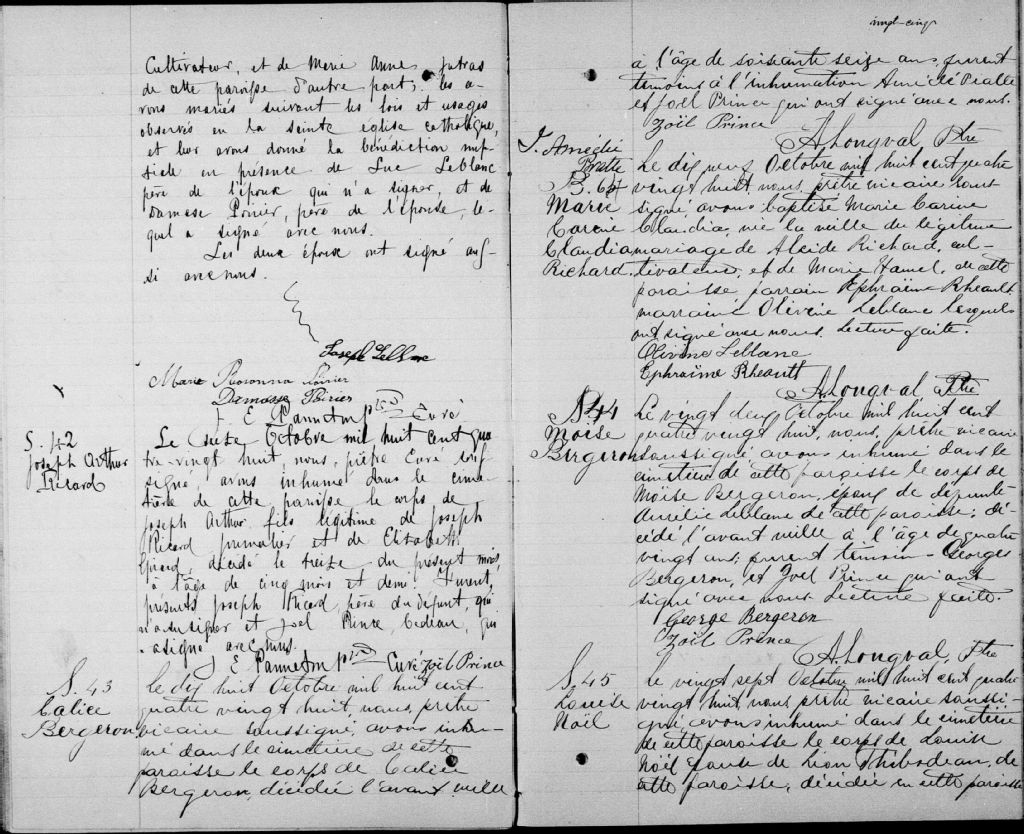 Cultivateur, et de Marie Anne Jutras
de cette paroisse d'autre part; les a-
vons mariés suivant les lois et usages
observés en la sainte église catholique,
et leur avons donné la bénédiction nup-
tiale en présence de Luc Leblanc
père de l'époux qui n'a signer, et de
Damase Poirier, père de l'épouse, le-
quel a signé avec nous.
Les deux époux ont signé aus-
si avec nous.
Joseph Leblanc
Marie Rosanna Poirier
Damase Poirier
J. E. Panneton ptre Curé
S. 42
Joseph Arthur
Ricard
Le seize Octobre mil huit cent qua
tre-vingt huit, nous, prêtre Curé sous
signé, avons inhumé dans le cime-
tière de cette paroisse le corps de
Joseph Arthur, fils légitime de Joseph
Ricard journalier et de Elisabeth
Girard, décédé le treize du présent mois,
à l'âge de cinq mois et demi. Furent
présents Joseph Ricard, père du défunt, qui
n'a su signer et Joel Prince, bedeau, qui
a signé avec nous.
J. E. Panneton ptre Curé Zoël Prince
S. 43
Calice
Bergeron
Le dix huit Octobre mil huit cent
quatre vingt huit, nous, prêtre
vicaire soussigné, avons inhu-
mé dans le cimetière de cette
paroisse le corps de Calice
Bergeron, décédée l'avant veille
vingt-cinq
à l'âge de soixante seize ans, furent
témoins à l'inhumation Amédé Pratte
et Joel Prince qui ont signé avec nous.
Zoël Prince
A. Longval Ptre
J. Améglie
Pratte
B. 64
Marie
Carine
Claudia
Richard.
Le dix neuf Octobre mil huit cent quatre
vingt huit, nous, prêtre vicaire sous
signé avons baptisé Marie Carine
Claudia, née la veille du légitime
mariage de Alcide Richard, cul-
tivateur, et de Marie Hamel, de cette
paroisse parrain Ephraïme Rheault
marraine Olivine Leblanc lesquels
ont signé avec nous. Lecture faite.
Olivine Leblanc
Ephraïme Rheault
A. Longval Ptre
S. 44
Moïse
Bergeron
Le vingt deux Octobre mil huit cent
quatre vingt huit, nous, prêtre vicaire
soussigné avons inhumé dans le
cimetière de cette paroisse le corps de
Moïse Bergeron, époux de défunte
Aurélie Leblanc de cette paroisse; dé-
cédé l'avant veille à l'âge de quatre
vingt ans; furent témoins Georges
Bergeron, et Joel Prince qui ont
signé avec nous Lecture faite.
George Bergeron
Zoël Prince
A. Longval, Ptre
S. 45
Louise
Noël
Le vingt sept Octobre mil huit cent quatre
vingt huit, nous prêtre vicaire soussi-
gné, avons inhumé dans le cimetière
de cette paroisse le corps de Louise
Noël épouse de Léon Thibodeau, de
cette paroisse, décédée en cette paroisse